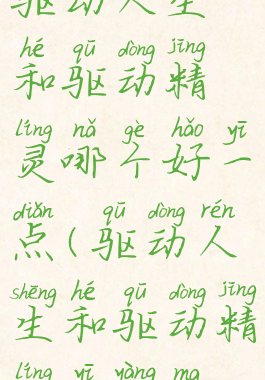 驱动人生
hé qū dòng jīng
和驱动精
líng nǎ gè hǎo yī
灵哪个好一
diǎn qū dòng rén
点(驱动人
shēng hé qū dòng jīng
生和驱动精
líng yī yàng ma